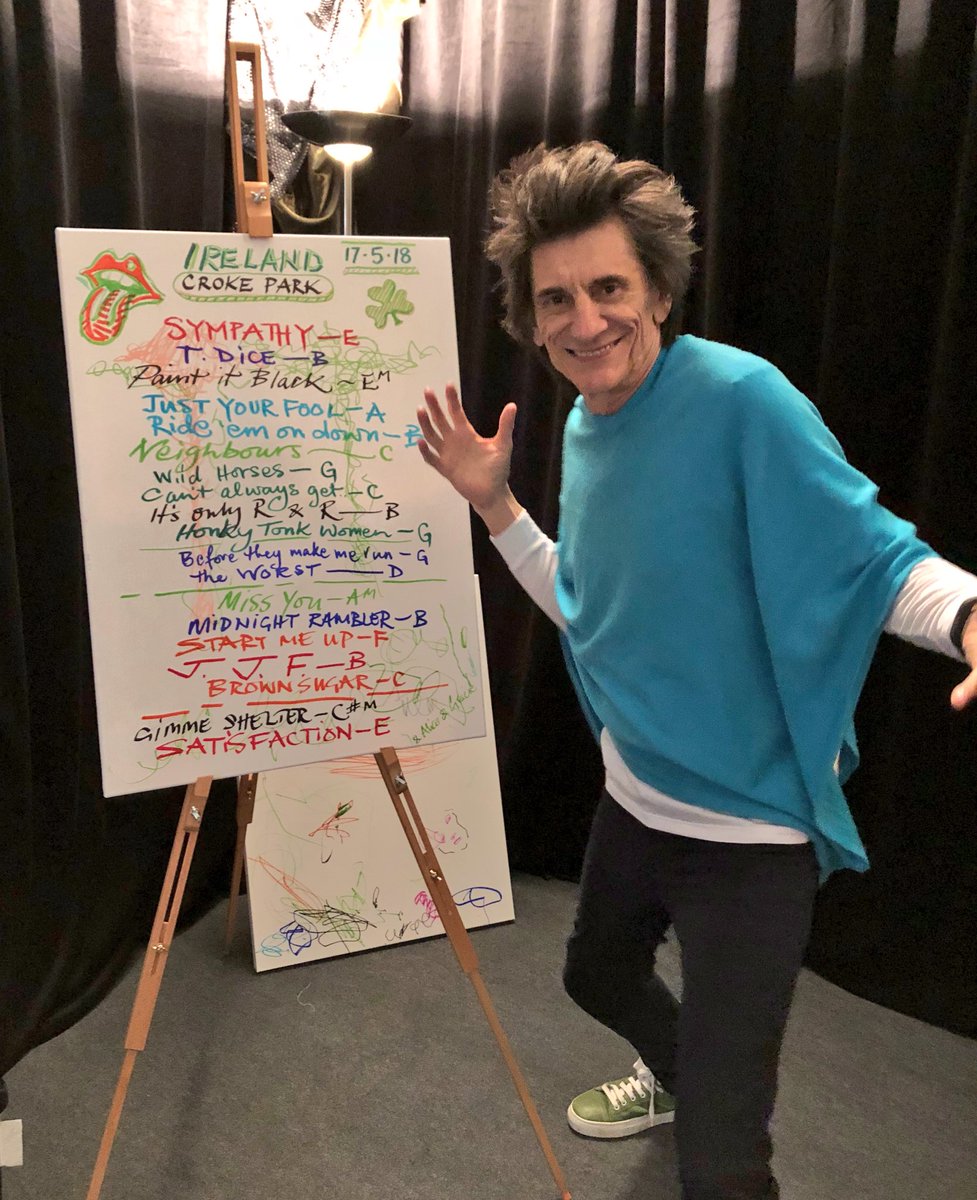 IRELAND
17-5-18
CROKE PARK
SYMPATHY—E
T. DICE—B
Paint it Black ~ EM
JUST YOUR FOOL—A
Ride 'em on down—B
Neighbours — C
Wild HORSES—G
Can't always get—C
It's only R & R—B
Honky Tonk Women—G
Before they make me run—G
the WORST — D
MISS YOU—AM
MIDNIGHT RAMBLER—B
START ME UP—F
J. J. F.—B
BROWN SUGAR—C
GIMME SHELTER—C#M
SATISFACTION—E
& Alice & Gracie